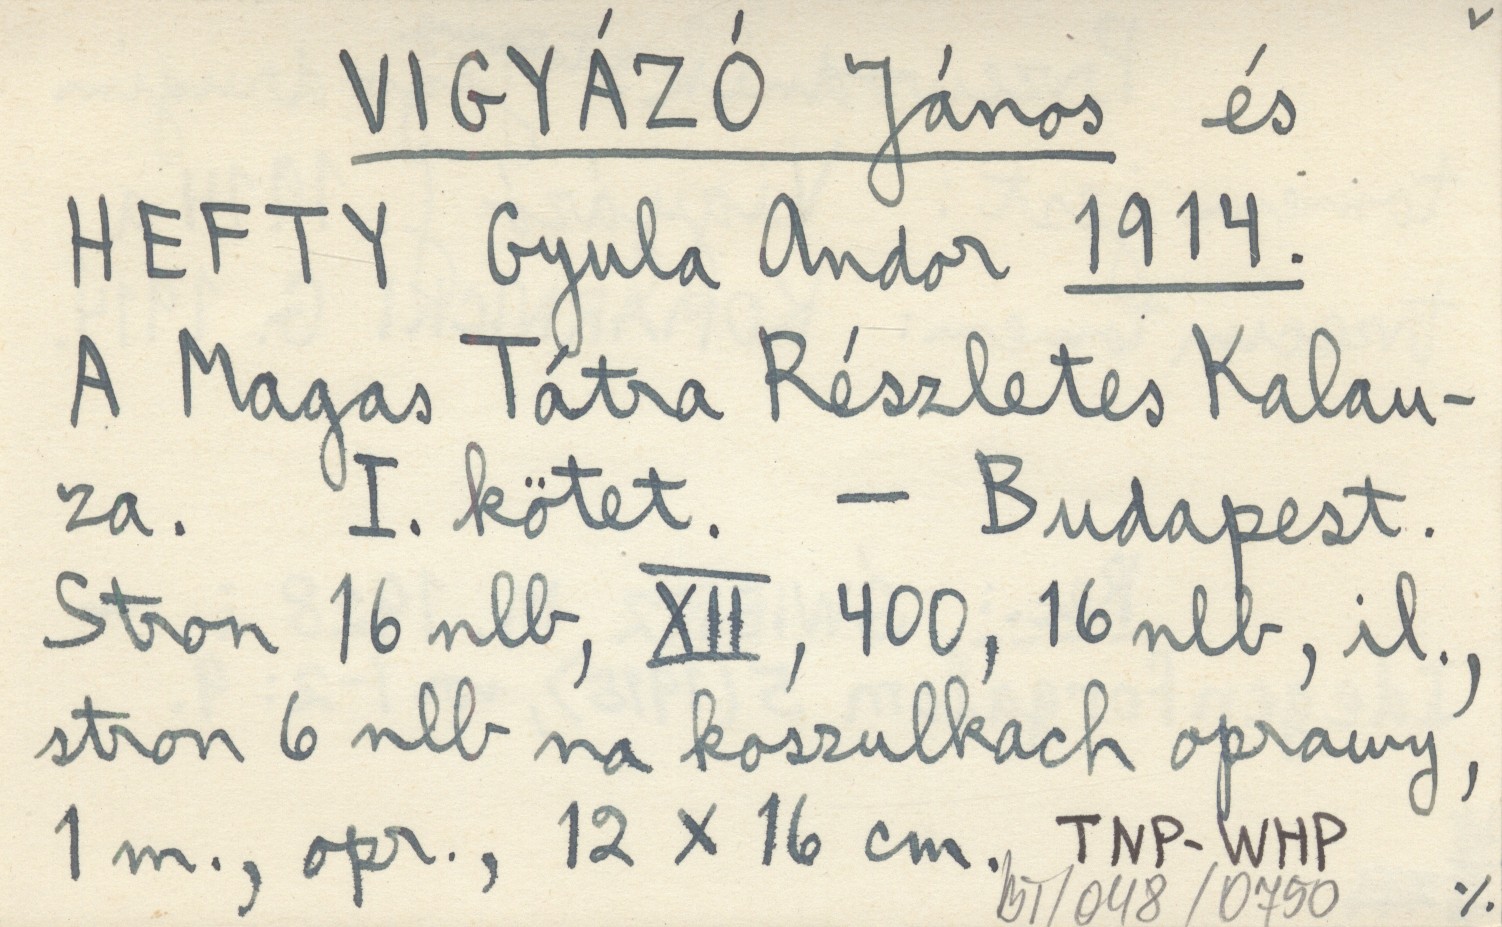 VIGYÁZÓ János és
HEFTY Gyula Andor 1914.
A Magas Tátra Részletes Kalau-
za. I. kötet. — Budapest.
Stron 16 nlb, XII, 400, 16 nlb, il.,
stron 6 nlb na koszulkach oprawy,
1 m., opr., 12 x 16 cm. TNP-WHP
BT/048/0750 ./.